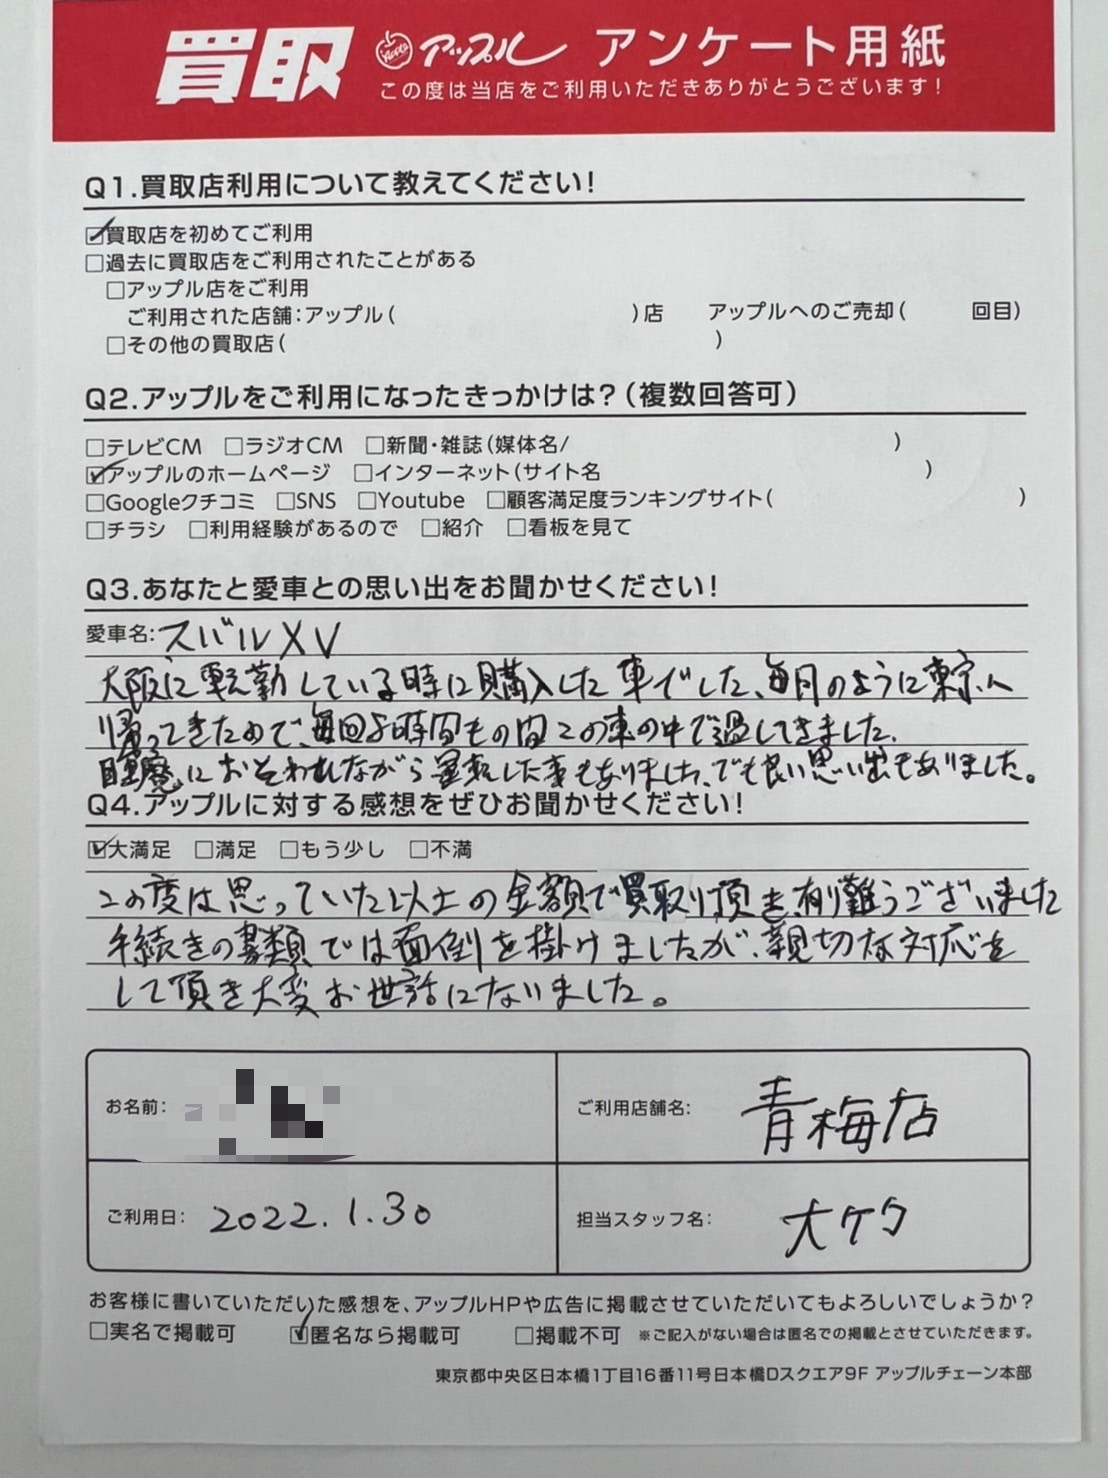 買取 Apple アップル アンケート用紙
この度は当店をご利用いただきありがとうございます!
Q1.買取店利用について教えてください!
☑買取店を初めてご利用
□過去に買取店をご利用されたことがある
□アップル店をご利用
ご利用された店舗:アップル( )店 アップルへのご売却( 回目)
□その他の買取店( )
Q2.アップルをご利用になったきっかけは?(複数回答可)
□テレビCM □ラジオCM □新聞・雑誌(媒体名/ )
☑アップルのホームページ □インターネット(サイト名 )
□Googleクチコミ □SNS □Youtube □顧客満足度ランキングサイト( )
□チラシ □利用経験があるので □紹介 □看板を見て
Q3.あなたと愛車との思い出をお聞かせください!
愛車名:スバルXV
大阪に転勤している時に購入した車でした、毎月のように東京へ
帰ってきたためで、毎回8時間もの間この車の中で過してきました.
睡魔におそわれながら運転した事もありました、でも良い思い出もありました。
Q4.アップルに対する感想をぜひお聞かせください!
☑大満足 □満足 □もう少し □不満
この度は思っていた以上の金額で買取り頂き、有り難うございました
手続きの書類では面倒を掛けましたが、親切な対応を
して頂き大変お世話になりました。
お名前:
ご利用店舗名: 青梅店
ご利用日: 2022.1.30
担当スタッフ名: 大ケク
お客様に書いていただいた感想を、アップルHPや広告に掲載させていただいてもよろしいでしょうか?
□実名で掲載可 ☑匿名なら掲載可 □掲載不可 ※ご記入がない場合は匿名での掲載とさせていただきます。
東京都中央区日本橋1丁目16番11号日本橋Dスクエア9F アップルチェーン本部